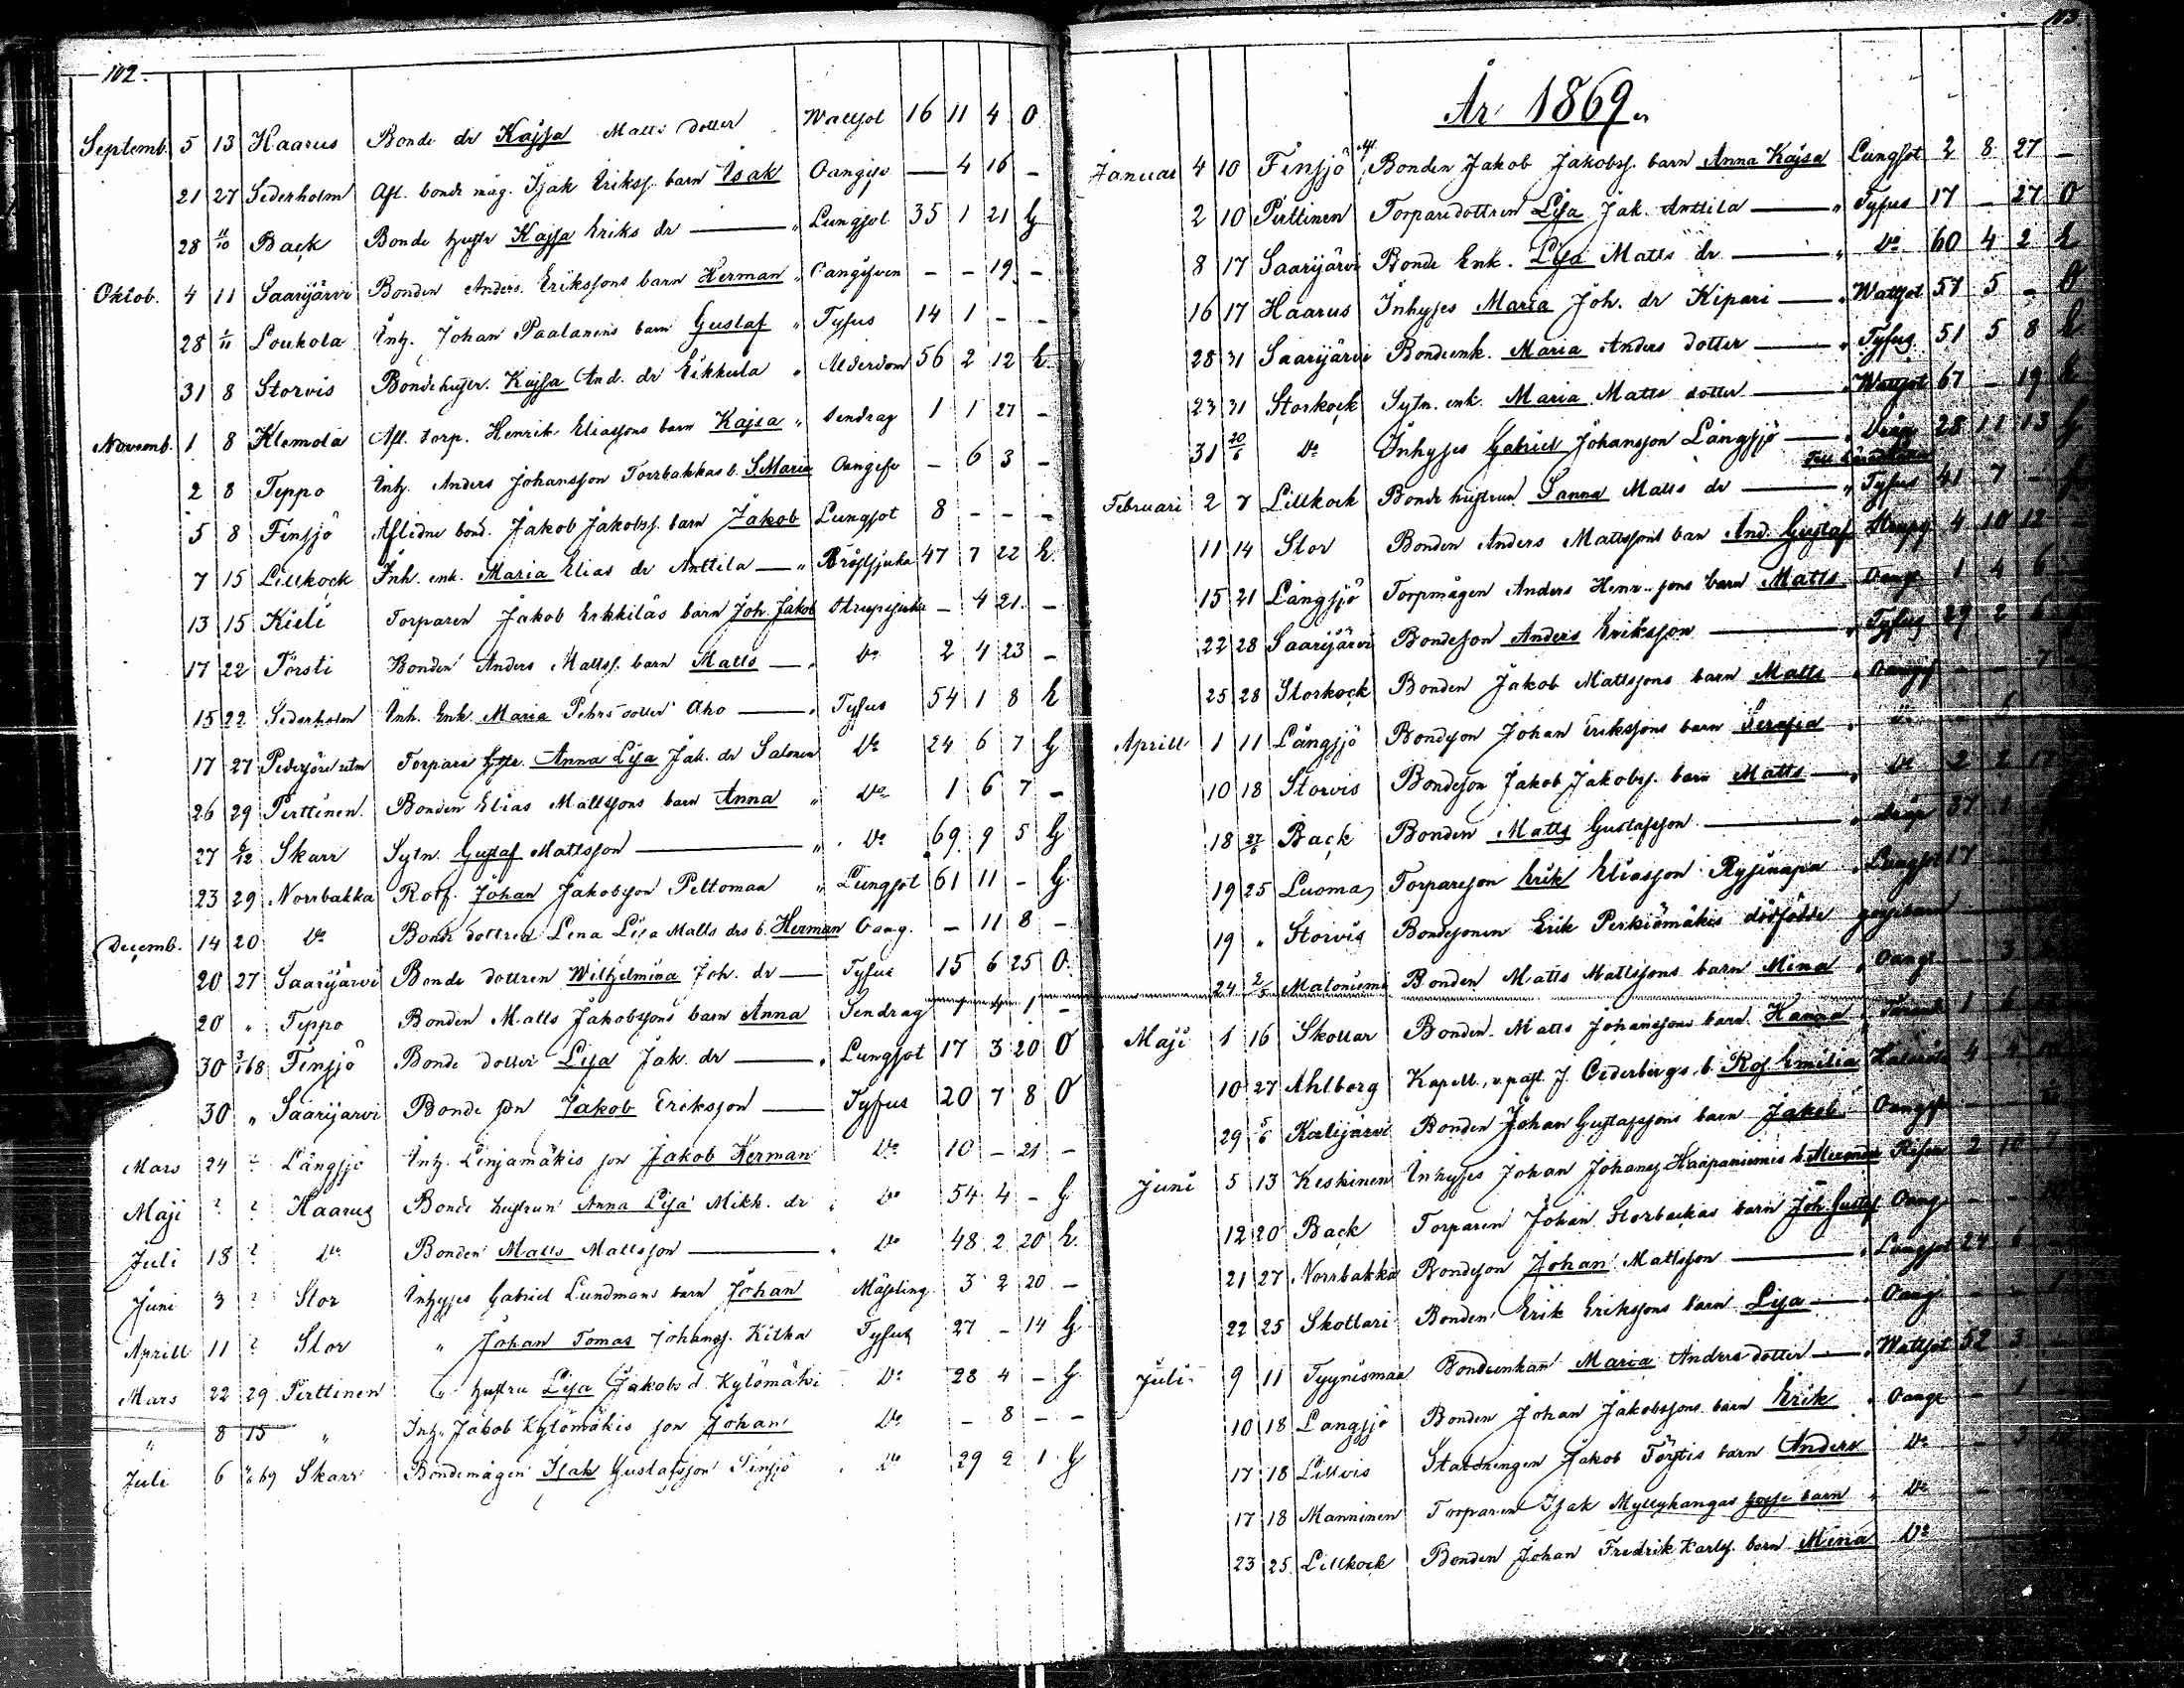 102.
Septemb. 5 13 Haarus Bonde dr Kajsa Matts dotter Wattsot 16 11 4 O
21 27 Sederholm Afl. bonde måg. Isak Eriksf. barn Isak Oangifv — 4 16 -
28 11/10 Back Bonde hustr Kajsa Eriks dr — " Lungsot 35 1 21 G
Oktob. 4 11 Saarijärvi Bonden Anders Erikssons barn Herman " Oangifven - - 19 -
28 1/11 Loukola Inh. Johan Paalanens barn Gustaf " Tyfus 14 1 - -
31 8 Storvis Bondehustr. Kajsa And. dr Eikkula " Ålderdom 56 2 12 h.
Novemb. 1 8 Klemola Afl. torp. Henrik Eliassons barn Kajsa " Sendrag 1 1 27 -
2 8 Teppo Inh. Anders Johansson Torrbakkas b. S Maria Oangifv - 6 3 -
5 8 Finsjö Aflidne bond. Jakob Jakobsf. barn Jakob Lungsot 8 - - -
7 15 Lillkock Inh. enk. Maria Elias dr Anttila — " Bröstsjuka 47 7 22 h.
13 15 Kieli Torparen Jakob Erkkiläs barn Joh. Jakob Strupsjuka - 4 21. -
17 22 Törsti Bonden Anders Mattsf. barn Matts — " Do 2 4 23 -
15 22 Sederholm Inh. Enk Maria Pehrs dotter Aho — " Tyfus 54 1 8 h
17 27 Torpare hstr. Anna Lisa Jak. dr Salonen Do 24 6 7 G
26 29 Perttinen. Bonden Elias Mattssons barn Anna " Do 1 6 7 -
27 6/12 Skarr Sytn. Gustaf Mattsson — " Do 69 9 5 G
23 29 Norrbakka Rotf. Johan Jakobsson Peltomaa " Lungsot 61 11 - G
Decemb. 14 20 Do Bonde dottren Lena Lisa Matts drs b. Herman Oang. - 11 8 -
20 27 Saarijärvi Bonde dottren Wilhelmina Joh. dr — Tyfus 15 6 25 O.
20 " Teppo Bonden Matts Jakobssons barn Anna Sendrag 1 4 1 -
30 Finsjö Bonde dotter Lisa Jak. dr — " Lungsot 17 3 20 O
30 " Saarijärvi Bonde son Jakob Eriksson — Tyfus 20 7 8 O
Mars 24 ? Långsjö Inh. Linjamäkis son Jakob Herman Do 10 - 21 -
Maji ? ? Haarus Bonde hustrun Anna Lisa Mikh. dr " Do 54 4 - G
Juli 18 ? Do Bonden Matts Mattsson — " Do 48 2 20 h.
Juni 3 ? Stor Inhyses Gabriel Lundmans barn Johan Mässling 3 2 20 -
Aprill 11 ? Stor " Johan Tomas Johansf. Kitka Tyfus 27 - 14 G
Mars 22 29 Perttinen " hustru Lisa Jakobs d. Kylömäki Do 28 4 - G
" 8 15 " Inh. Jakob Kylömäkis son Johan Do - 8 - -
Juli 6 Skarr Bondemågen Isak Gustafsson Finsjö " Do 29 2 1 G
103
År 1869.
Januar 4 10 Finsjö afl. Bonden Jakob Jakobsf. barn Anna Kajsa Lungsot 2 8 27 -
2 10 Perttinen Torparedottren Lisa Jak. Anttila — " Tyfus 17 - 27 O
8 17 Saarijärvi Bonde Enk. Lisa Matts dr — " Do 60 4 2 h
16 17 Haarus Inhyses Maria Joh. dr Kipari — " Wattsot 57 5 - O
28 31 Saarijärvi Bondeenk. Maria Anders dotter — " Tyfus 51 5 8 h
23 31 Storkock Sytn. enk. Maria Matts dotter — " Wattsot 67 - 19 h
31 20/6 Do Inhyses Gabriel Johansson Långsjö — " 28 11 13 G
Februari 2 7 Lillkock Bonde hustrun Sanna Matts dr — " Tyfus 41 7 -
11 14 Stor Bonden Anders Mattssons barn And. Gustaf Strupsj 4 10 12
15 21 Långsjö Torpmågen Anders Henr..sons barn Matts Oangf 1 4 6
22 28 Saarijärvi Bondeson Anders Eriksson — " Tyfus 29 2 6
25 28 Storkock Bonden Jakob Mattssons barn Matts " Oangif - - 7
Aprill 1 11 Långsjö Bondeson Johan Erikssons barn Serafia " Do - 6
10 18 Storvis Bondeson Jakob Jakobsf. barn Matts — " Do 2 2 17
18 27/6 Back Bonden Matts Gustafsson — " 37 1
19 25 Luoma Torpareson Erik Eliasson Rysinapa " Lungsot 17 -
19 " Storvis Bondesonen Erik Perkiömäkis dödfödde gossebarn
24 2/5 Maloniemi Bonden Matts Mattssons barn Mina " Oangf - 3
Maji 1 16 Skottar Bonden Matts Johanssons barn Hanna " 1 6
10 27 Ahlborg Kapell., v. past. J. Cederbergs b. Ros. Emilia 4 4
29 5/6 Kalijärvi Bonden Johan Gustafssons barn Jakob Oangf - -
Juni 5 13 Keskinen Inhyses Johan Johansf. Haapaniemis b. 2 10
12 20 Back Torparen Johan Storbackas barn Joh. Gustaf Oangf - -
21 27 Norrbakka Bondeson Johan Mattsson — " Lungsot 24 6
22 25 Skottari Bonden Erik Erikssons barn Lisa — " Oang - -
Juli 9 11 Tyynismaa Bondeenkan Maria Anders dotter — " Wattsot 52 3
10 18 Långsjö Bonden Johan Jakobssons barn Erik " Oangf - 1
17 18 Lillvis Jakob Törstis barn Anders Do -
17 18 Manninen Torparen Isak Myllykangas gosse barn " Do
23 25 Lillkock Bonden Johan Fredrik Karlsf. barn Mina Do